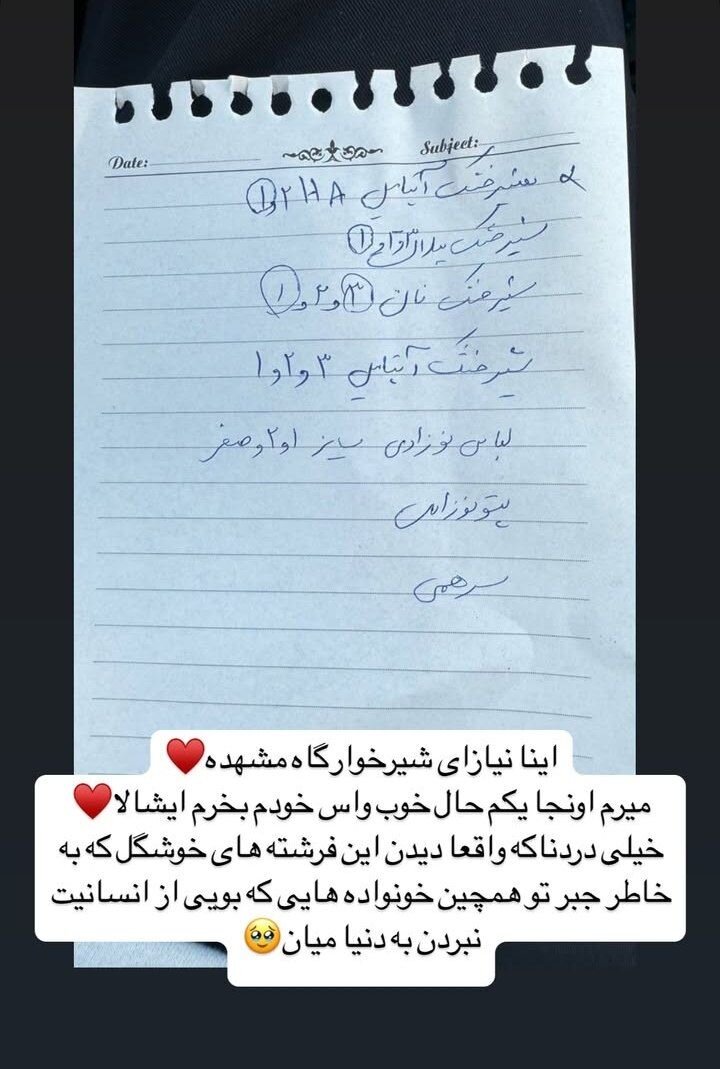 Date: Subject:
شیرخشک آپتامیل HA ۲و۱
شیرخشک ۳و۲و۱
شیرخشک نان ۳و۲و۱
شیرخشک آپتامیل ۳و۲و۱
لباس نوزادی سایز ۱و۲وصفر
پتو نوزادی
سرهمی
اینا نیازای شیرخوارگاه مشهده♥️
میرم اونجا یکم حال خوب واس خودم بخرم ایشالا♥️
خیلی دردناکه واقعا دیدن این فرشته های خوشگل که به
خاطر جبر تو همچین خونواده هایی که بویی از انسانیت
نبردن به دنیا میان🥹